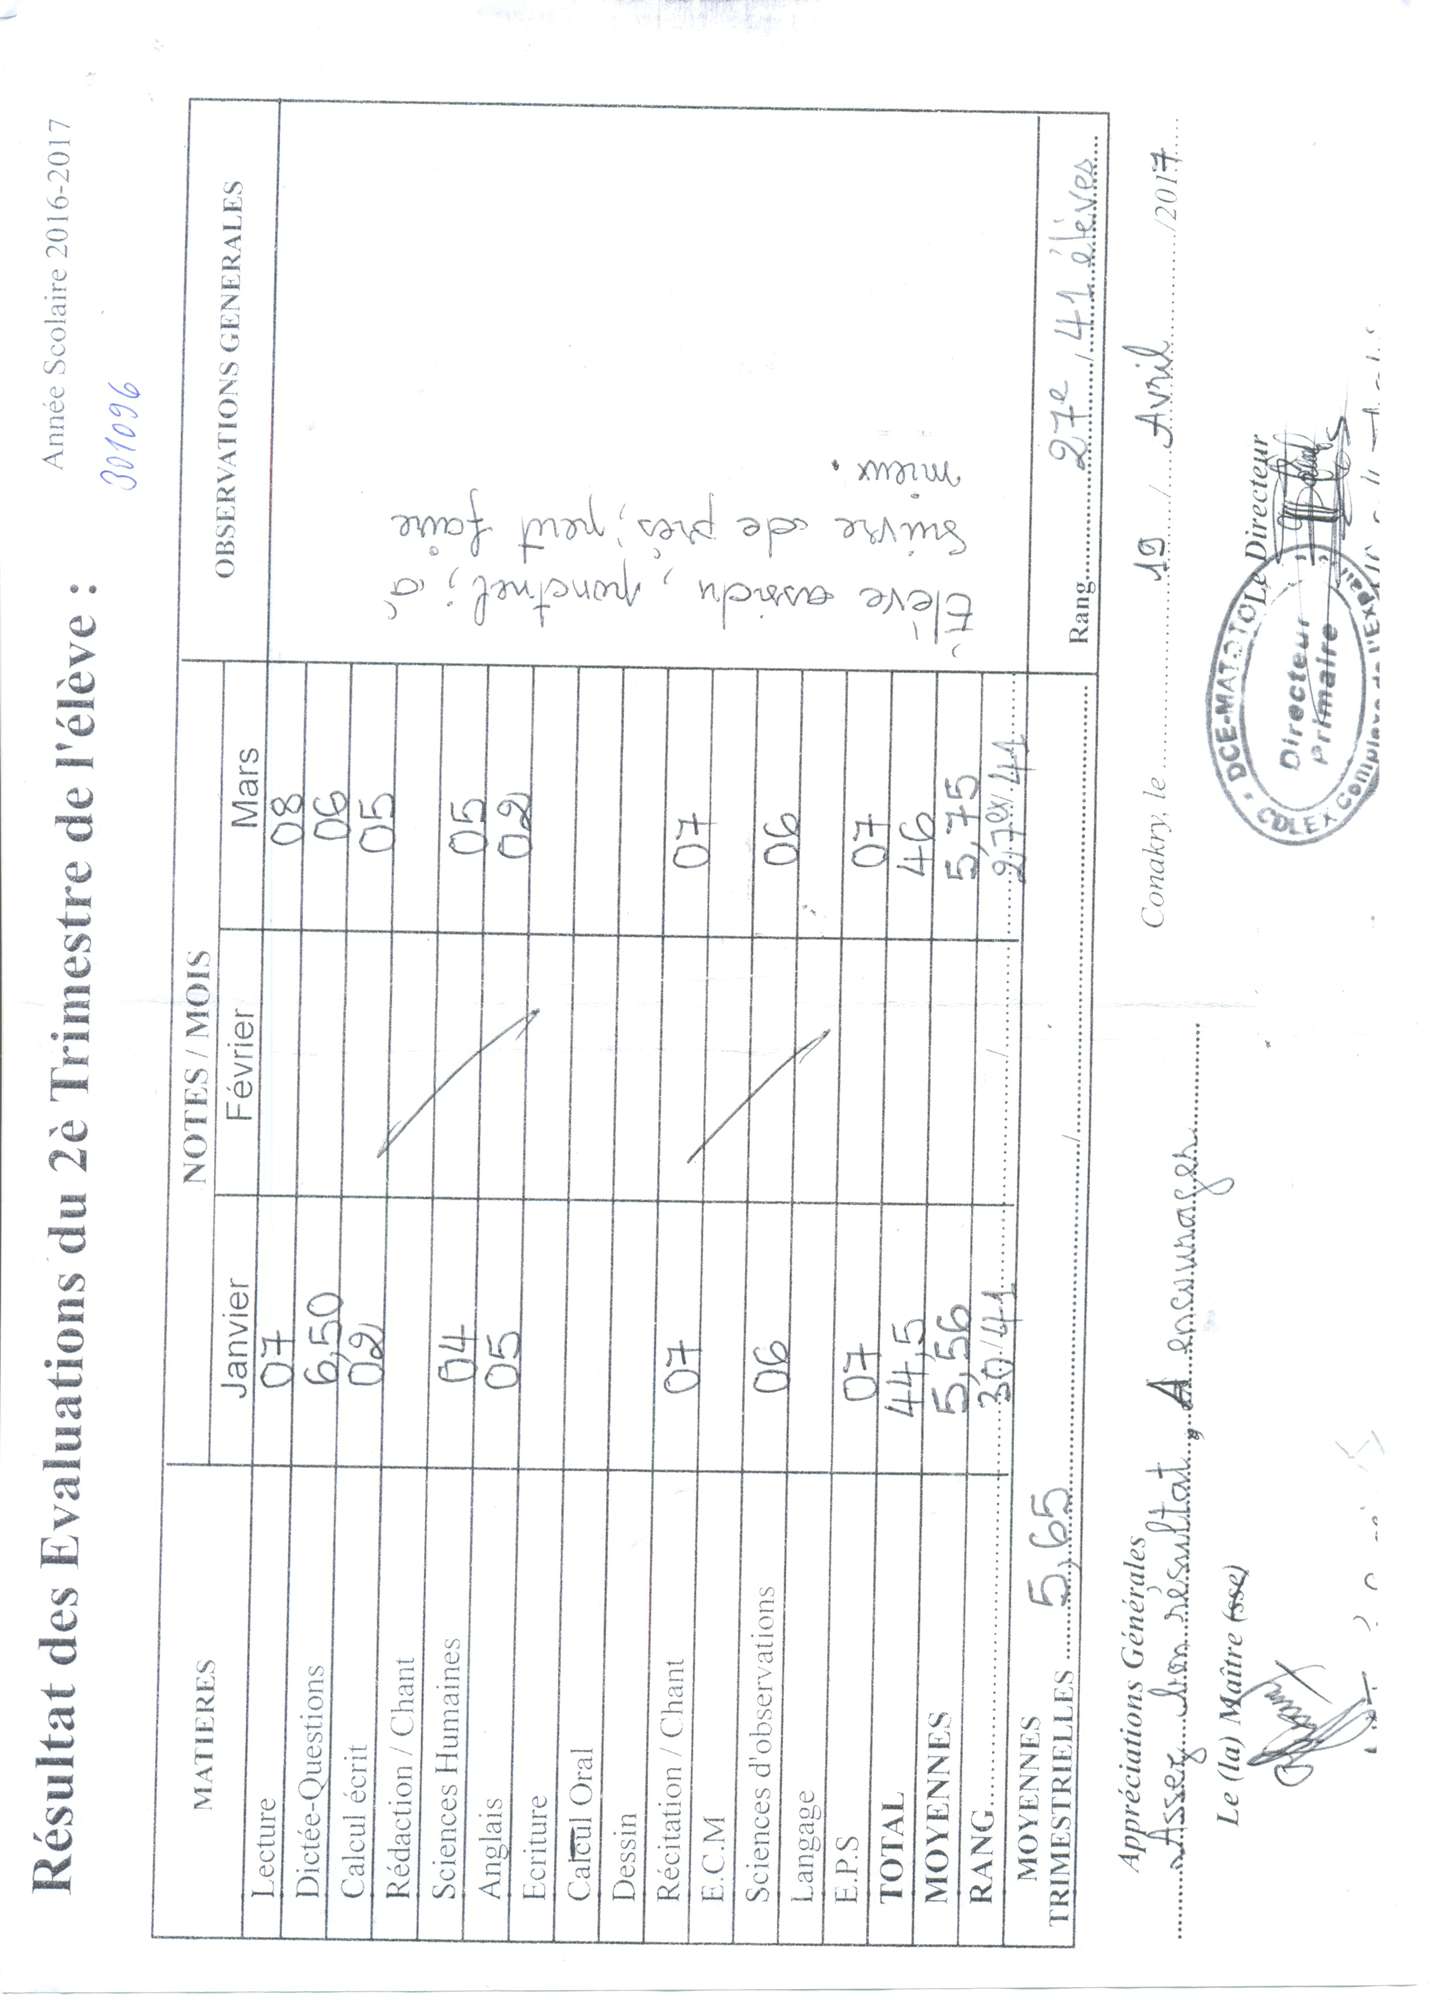 Année Scolaire 2016-2017
Résultat des Evaluations du 2è Trimestre de l'élève :
301096
MATIERES NOTES / MOIS OBSERVATIONS GENERALES
Janvier Février Mars
Lecture 07 08
Dictée-Questions 6,50 06
Calcul écrit 02 05
Rédaction / Chant
Sciences Humaines 04 05
Anglais 05 02
Ecriture
Calcul Oral
Dessin
Récitation / Chant 07 07
E.C.M
Sciences d'observations 06 06
Langage
E.P.S 07 07
TOTAL 44,5 46
MOYENNES 5,56 5,75
RANG 30/41 27ex/41
Elève assidu, ponctuel ; à
suivre de près ; peut faire
mieux.
MOYENNES
TRIMESTRIELLES 5,65 / Rang 27e / 41 élèves
Appréciations Générales
Assez bon résultat, A encourager
Conakry, le 19 / Avril /2017
Le (la) Maître (sse)
Le Directeur
DCE-MATOTO
Directeur
Primaire
COLEX Complexe de l'Expair